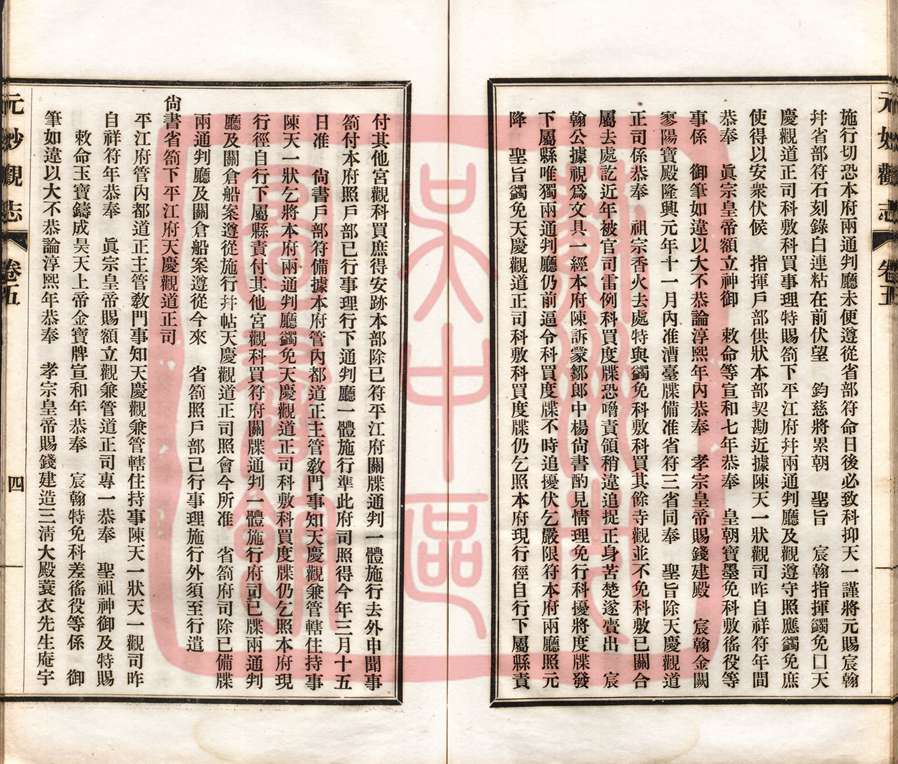 施行切恐本府兩通判廳未便遵從省部符命日後必致科抑天一謹將元賜宸翰
并省部符石刻錄白連粘在前伏望　鈞慈將累朝　聖旨　宸翰指揮蠲免口天
慶觀道正司科敷科買事理特賜箚下平江府幷兩通判廳及觀遵守照應蠲免庶
使得以安衆伏候　指揮戶部供狀本部契勘近據陳天一狀觀司昨自祥符年間
恭奉　眞宗皇帝額立神御　敕命等宣和七年恭奉　皇朝寶墨免科敷徭役等
事係　御筆如違以大不恭論淳熙年內恭奉　孝宗皇帝賜錢建殿　宸翰金闕
寥陽寶殿隆興元年十一月內准漕臺牒備准省符三省同奉　聖旨除天慶觀道
正司係恭奉　祖宗香火去處特與蠲免科敷科買其餘寺觀並不免科敷已關合
屬去處訖近年被官司雷例科買度牒恐嚇責領稍違追捉正身苦楚遂賣出　宸
翰公據視爲文具一經本府陳訴蒙鄒郎中楊尙書酌見情理免行科擾將度牒發
下屬縣唯獨兩通判廳仍前逼令科買度牒不時追擾伏乞嚴限符本府兩廳照元
降　聖旨蠲免天慶觀道正司科敷科買度牒仍乞照本府現行徑自行下屬縣責
付其他宮觀科買庶得安跡本部除已符平江府關牒通判一體施行去外申聞事
箚付本府照戶部已行事理行下通判廳一體施行準此府司照得今年三月十五
日准　尙書戶部符備據本府管內都道正主管教門事知天慶觀兼管轄住持事
陳天一狀乞將本府兩通判廳蠲免天慶觀道正司科敷科買度牒仍乞照本府現
行徑自行下屬縣責付其他宮觀科買符府關牒通判一體施行府司已牒兩通判
廳及關倉船案遵從施行幷帖天慶觀道正司照會今所准　省箚府司除已備牒
兩通判廳及關倉船案遵從今來　省箚照戶部已行事理施行外須至行遣
尙書省箚下平江府天慶觀道正司
平江府管內都道正主管敎門事知天慶觀兼管轄住持事陳天一狀天一觀司昨
自祥符年恭奉　眞宗皇帝賜額立觀兼管道正司專一恭奉　聖祖神御及特賜
敕命玉寶鑄成昊天上帝金寶牌宣和年恭奉　宸翰特免科差徭役等係　御
筆如違以大不恭論淳熙年恭奉　孝宗皇帝賜錢建造三淸大殿蓑衣先生庵宇
元妙觀志
卷五
四